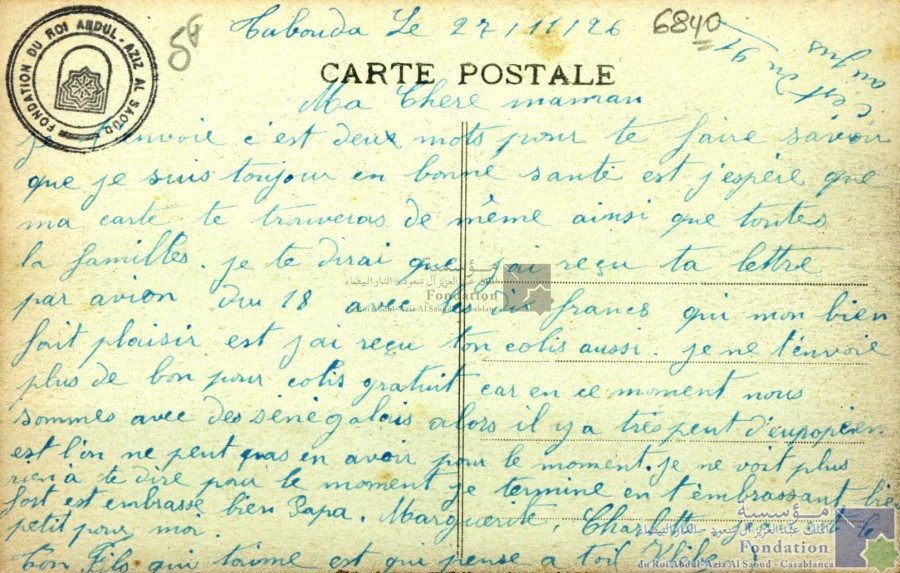 FONDATION DU ROI ABDUL-AZIZ AL SAOUD
5f
Tabouda Le 27/11/26
6840
CARTE POSTALE
c'est
au jus
Ma Chere maman
je t'envoie c'est deux mots pour te faire savoir
que je suis toujour en bonne santé est j'espère que
ma carte te trouveras de même ainsi que toutes
la familles. je te dirai que j'ai reçu ta lettre
par avion du 18 avec les dix francs qui mon bien
fait plaisir est j'ai reçu ton colis aussi. je ne t'envoie
plus de bon pour colis gratuit car en ce moment nous
sommes avec des sénégalais alors il y a très peut d'europoéen
est l'on ne peut pas en avoir pour le moment. je ne voit plus
rien à te dire pour le moment je termine en t'embrassant bien
fort est embrasse bien Papa. Marguerite, Charlotte,
petit pour moi.
Ton Fils qui t'aime est que pense a toi
مؤسسة
الملك عبد العزيز آل سعود - الدار البيضاء
Fondation
du Roi Abdul-Aziz Al Saoud - Casablanca
مؤسسة
الملك عبد العزيز آل سعود - الدار البيضاء
Fondation
du Roi Abdul-Aziz Al Saoud - Casablanca